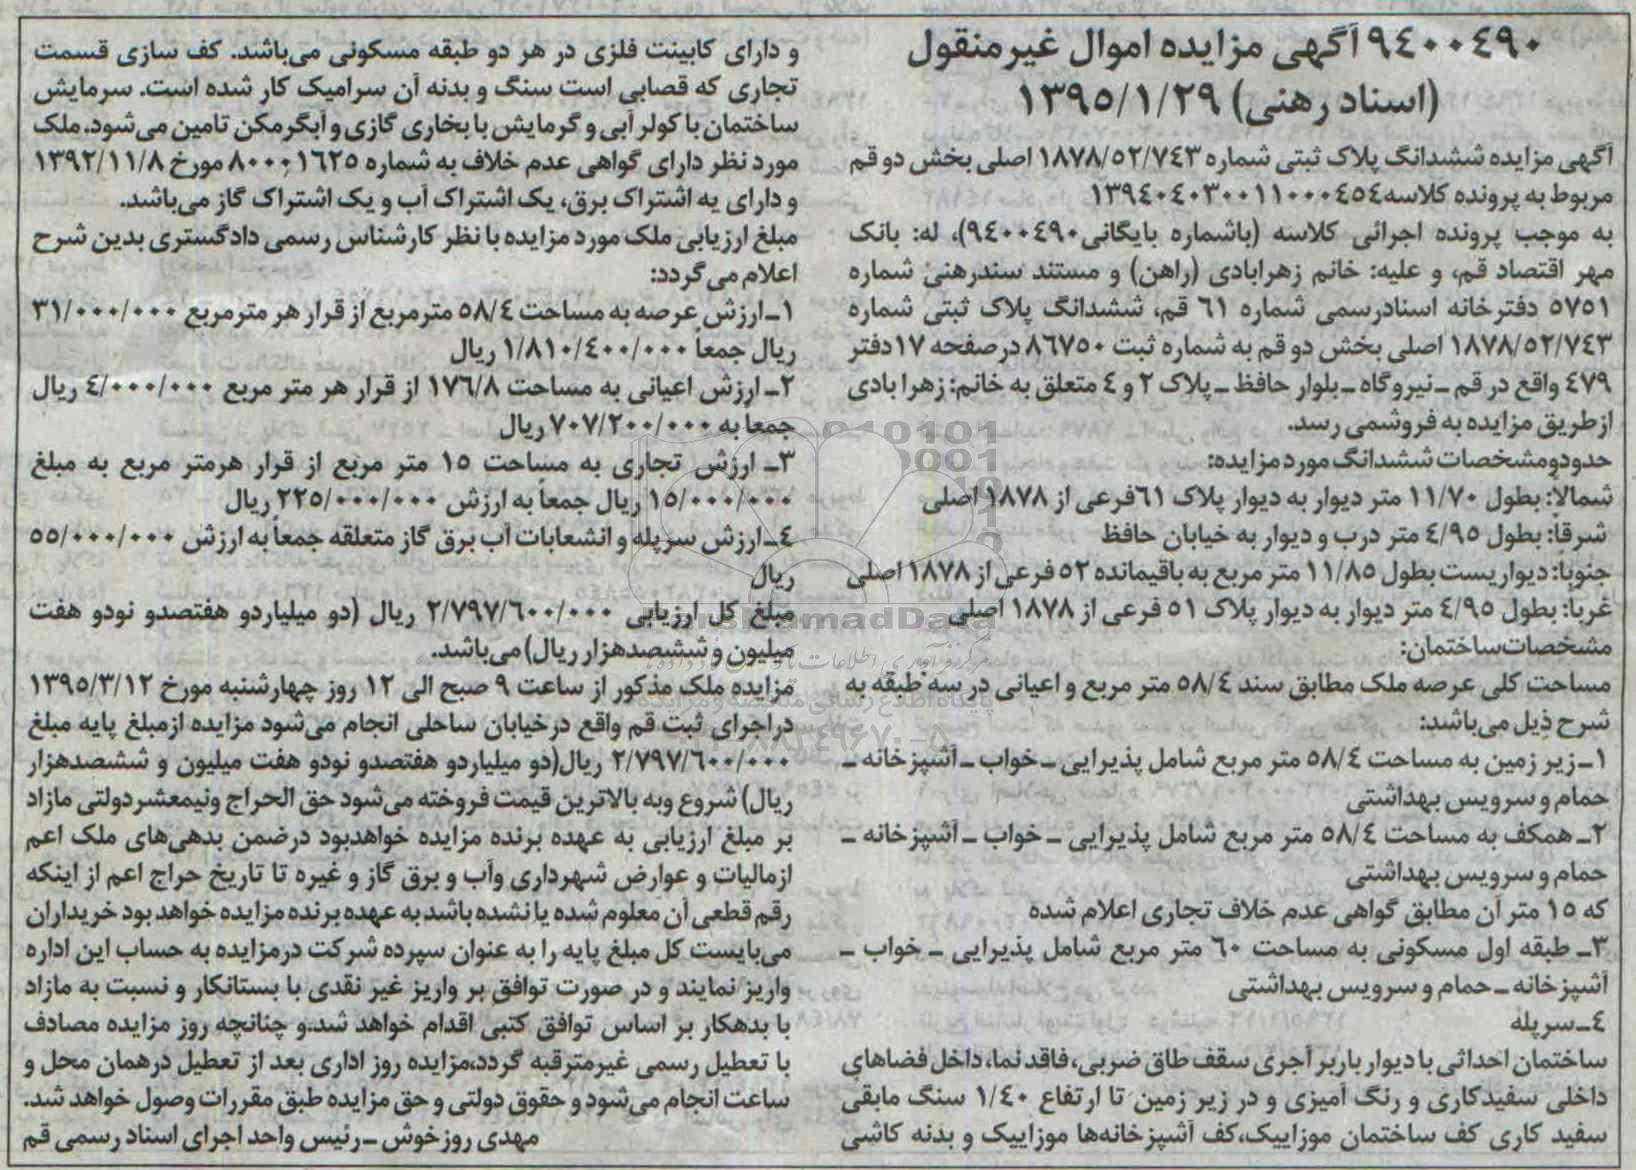 ۹۴۰۰۴۹۰ آگهی مزایده اموال غیرمنقول
(اسناد رهنی) ۱۳۹۵/۱/۲۹
آگهی مزایده ششدانگ پلاک ثبتی شماره ۱۸۷۸/۵۲/۷۴۳ اصلی بخش دو قم
مربوط به پرونده کلاسه ۱۳۹۴۰۴۰۳۰۰۱۱۰۰۰۴۵۴
به موجب پرونده اجرائی کلاسه (باشماره بایگانی ۹۴۰۰۴۹۰)، له: بانک
مهر اقتصاد قم، و علیه: خانم زهرابادی (راهن) و مستند سندرهنی شماره
۵۷۵۱ دفترخانه اسنادرسمی شماره ۶۱ قم، ششدانگ پلاک ثبتی شماره
۱۸۷۸/۵۲/۷۴۳ اصلی بخش دو قم به شماره ثبت ۸۶۷۵۰ در صفحه ۱۷ دفتر
۴۷۹ واقع در قم ـ نیروگاه ـ بلوار حافظ ـ پلاک ۲ و ۴ متعلق به خانم: زهرا بادی
از طریق مزایده به فروشمی رسد.
حدودومشخصات ششدانگ مورد مزایده:
شمالاً: بطول ۱۱/۷۰ متر دیوار به دیوار پلاک ۶۱فرعی از ۱۸۷۸ اصلی
شرقاً: بطول ۴/۹۵ متر درب و دیوار به خیابان حافظ
جنوباً: دیواریست بطول ۱۱/۸۵ متر مربع به باقیمانده ۵۲ فرعی از ۱۸۷۸ اصلی
غرباً: بطول ۴/۹۵ متر دیوار به دیوار پلاک ۵۱ فرعی از ۱۸۷۸ اصلی
مشخصات ساختمان:
مساحت کلی عرصه ملک مطابق سند ۵۸/۴ متر مربع و اعیانی در سه طبقه به
شرح ذیل می‌باشد:
۱ـ زیر زمین به مساحت ۵۸/۴ متر مربع شامل پذیرایی ـ خواب ـ آشپزخانه ـ
حمام و سرویس بهداشتی
۲ـ همکف به مساحت ۵۸/۴ متر مربع شامل پذیرایی ـ خواب ـ آشپزخانه ـ
حمام و سرویس بهداشتی
که ۱۵ متر آن مطابق گواهی عدم خلاف تجاری اعلام شده
۳ـ طبقه اول مسکونی به مساحت ۶۰ متر مربع شامل پذیرایی ـ خواب ـ
آشپزخانه ـ حمام و سرویس بهداشتی
۴ـ سرپله
ساختمان احداثی با دیوار باربر آجری سقف طاق ضربی، فاقد نما، داخل فضاهای
داخلی سفیدکاری و رنگ آمیزی و در زیر زمین تا ارتفاع ۱/۴۰ سنگ مابقی
سفید کاری کف ساختمان موزاییک، کف آشپزخانه‌ها موزاییک و بدنه کاشی
و دارای کابینت فلزی در هر دو طبقه مسکونی می‌باشد. کف سازی قسمت
تجاری که قصابی است سنگ و بدنه آن سرامیک کار شده است. سرمایش
ساختمان با کولر آبی و گرمایش با بخاری گازی و آبگرمکن تامین می‌شود. ملک
مورد نظر دارای گواهی عدم خلاف به شماره ۸۰۰۰۱۶۲۵ مورخ ۱۳۹۲/۱۱/۸
و دارای یه اشتراک برق، یک اشتراک آب و یک اشتراک گاز می‌باشد.
مبلغ ارزیابی ملک مورد مزایده با نظر کارشناس رسمی دادگستری بدین شرح
اعلام می‌گردد:
۱ـ ارزش عرصه به مساحت ۵۸/۴ مترمربع از قرار هر مترمربع ۳۱/۰۰۰/۰۰۰
ریال جمعاً ۱/۸۱۰/۴۰۰/۰۰۰ ریال
۲ـ ارزش اعیانی به مساحت ۱۷۶/۸ از قرار هر متر مربع ۴/۰۰۰/۰۰۰ ریال
جمعا به ۷۰۷/۲۰۰/۰۰۰ ریال
۳ـ ارزش تجاری به مساحت ۱۵ متر مربع از قرار هرمتر مربع به مبلغ
۱۵/۰۰۰/۰۰۰ ریال جمعاً به ارزش ۲۲۵/۰۰۰/۰۰۰ ریال
۴ـ ارزش سرپله و انشعابات آب برق گاز متعلقه جمعاً به ارزش ۵۵/۰۰۰/۰۰۰
ریال
مبلغ کل ارزیابی ۲/۷۹۷/۶۰۰/۰۰۰ ریال (دو میلیاردو هفتصدو نودو هفت
میلیون و ششصدهزار ریال) می‌باشد.
مزایده ملک مذکور از ساعت ۹ صبح الی ۱۲ روز چهارشنبه مورخ ۱۳۹۵/۳/۱۲
دراجرای ثبت قم واقع درخیابان ساحلی انجام می‌شود مزایده ازمبلغ پایه مبلغ
۲/۷۹۷/۶۰۰/۰۰۰ ریال(دو میلیاردو هفتصدو نودو هفت میلیون و ششصدهزار
ریال) شروع وبه بالاترین قیمت فروخته می‌شود حق الحراج ونیمعشردولتی مازاد
بر مبلغ ارزیابی به عهده برنده مزایده خواهدبود درضمن بدهی‌های ملک اعم
ازمالیات و عوارض شهرداری وآب و برق گاز و غیره تا تاریخ حراج اعم از اینکه
رقم قطعی آن معلوم شده یا نشده باشد به عهده برنده مزایده خواهد بود خریداران
می‌بایست کل مبلغ پایه را به عنوان سپرده شرکت درمزایده به حساب این اداره
واریز نمایند و در صورت توافق بر واریز غیر نقدی با بستانکار و نسبت به مازاد
با بدهکار بر اساس توافق کتبی اقدام خواهد شد.و چنانچه روز مزایده مصادف
با تعطیل رسمی غیرمترقبه گردد،مزایده روز اداری بعد از تعطیل درهمان محل و
ساعت انجام می‌شود و حقوق دولتی و حق مزایده طبق مقررات وصول خواهد شد.
مهدی روزخوش ـ رئیس واحد اجرای اسناد رسمی قم